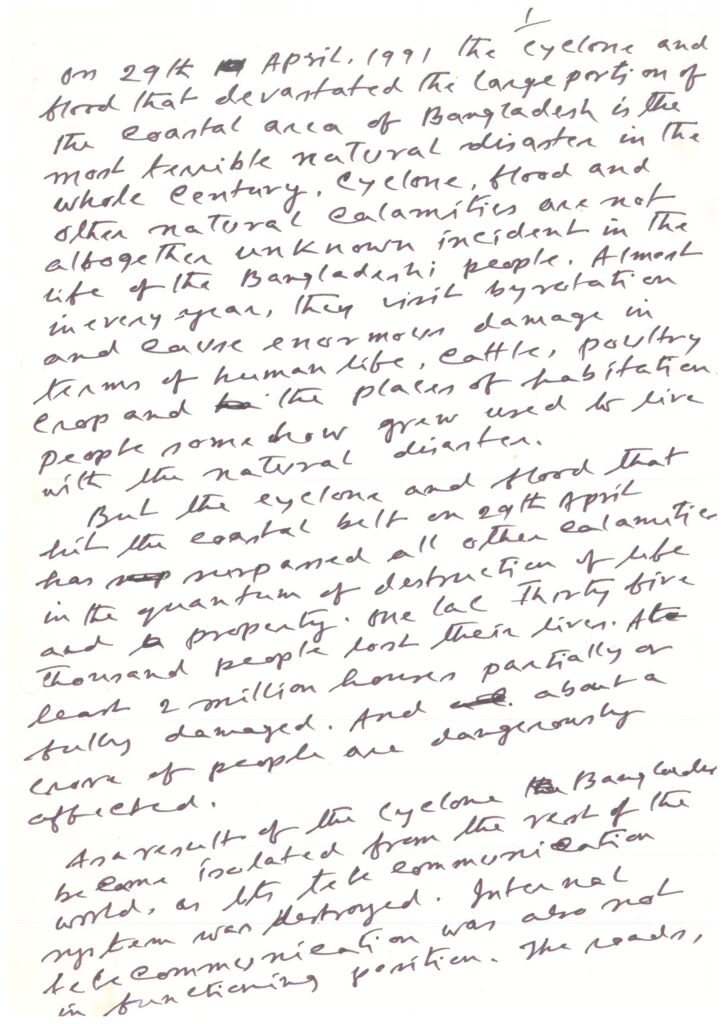 1
On 29th April, 1991 the cyclone and
flood that devastated the large portion of
the coastal area of Bangladesh is the
most terrible natural disaster in the
whole century. Cyclone, flood and
other natural calamities are not
altogether unknown incident in the
life of the Bangladeshi people. Almost
in every year, they visit by rotation
and cause enormous damage in
terms of human life, cattle, poultry
crop and the places of habitation.
People somehow grew used to live
with the natural disaster.
But the cyclone and flood that
hit the coastal belt on 29th April
has surpassed all other calamities
in the quantum of destruction of life
and property. One lac Thirty five
thousand people lost their lives. At
least 2 million houses partially or
fully damaged. And about a
crore of people are dangerously
affected.
As a result of the cyclone Banglades
became isolated from the rest of the
world, as its tele communication
system was destroyed. Internal
telecommunication was also not
in functioning position. The roads,